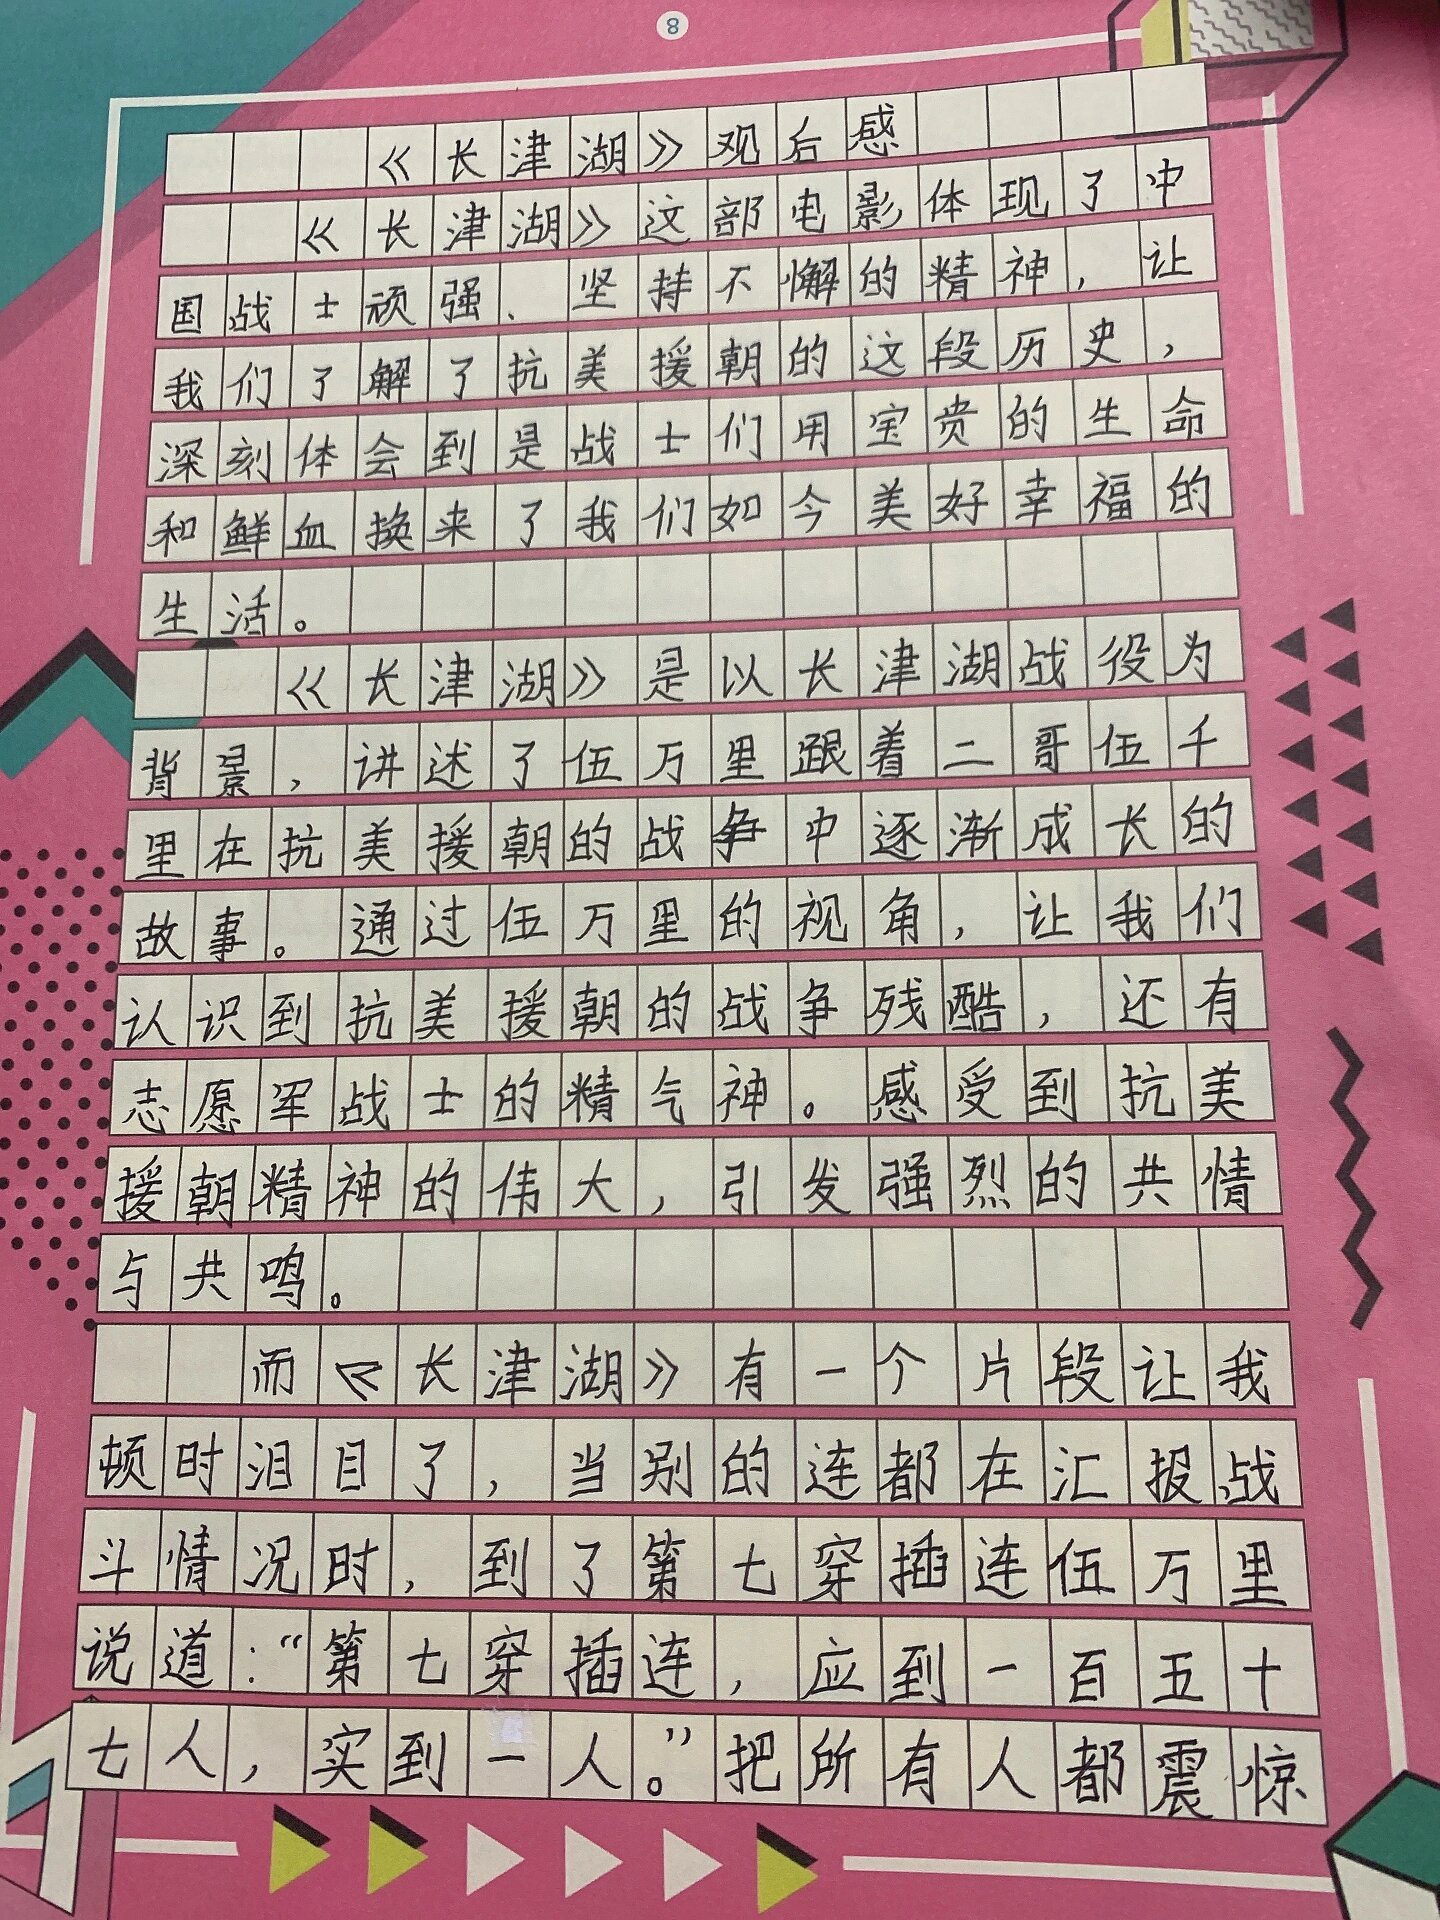 8
《长津湖》观后感
《长津湖》这部电影体现了中
国战士顽强、坚持不懈的精神,让
我们了解了抗美援朝的这段历史,
深刻体会到是战士们用宝贵的生命
和鲜血换来了我们如今美好幸福的
生活。
《长津湖》是以长津湖战役为
背景,讲述了伍万里跟着二哥伍千
里在抗美援朝的战争中逐渐成长的
故事。通过伍万里的视角,让我们
认识到抗美援朝的战争残酷,还有
志愿军战士的精气神。感受到抗美
援朝精神的伟大,引发强烈的共情
与共鸣。
而《长津湖》有一个片段让我
顿时泪目了,当别的连都在汇报战
斗情况时,到了第七穿插连伍万里
说道:“第七穿插连,应到一百五十
七人,实到一人。”把所有人都震惊